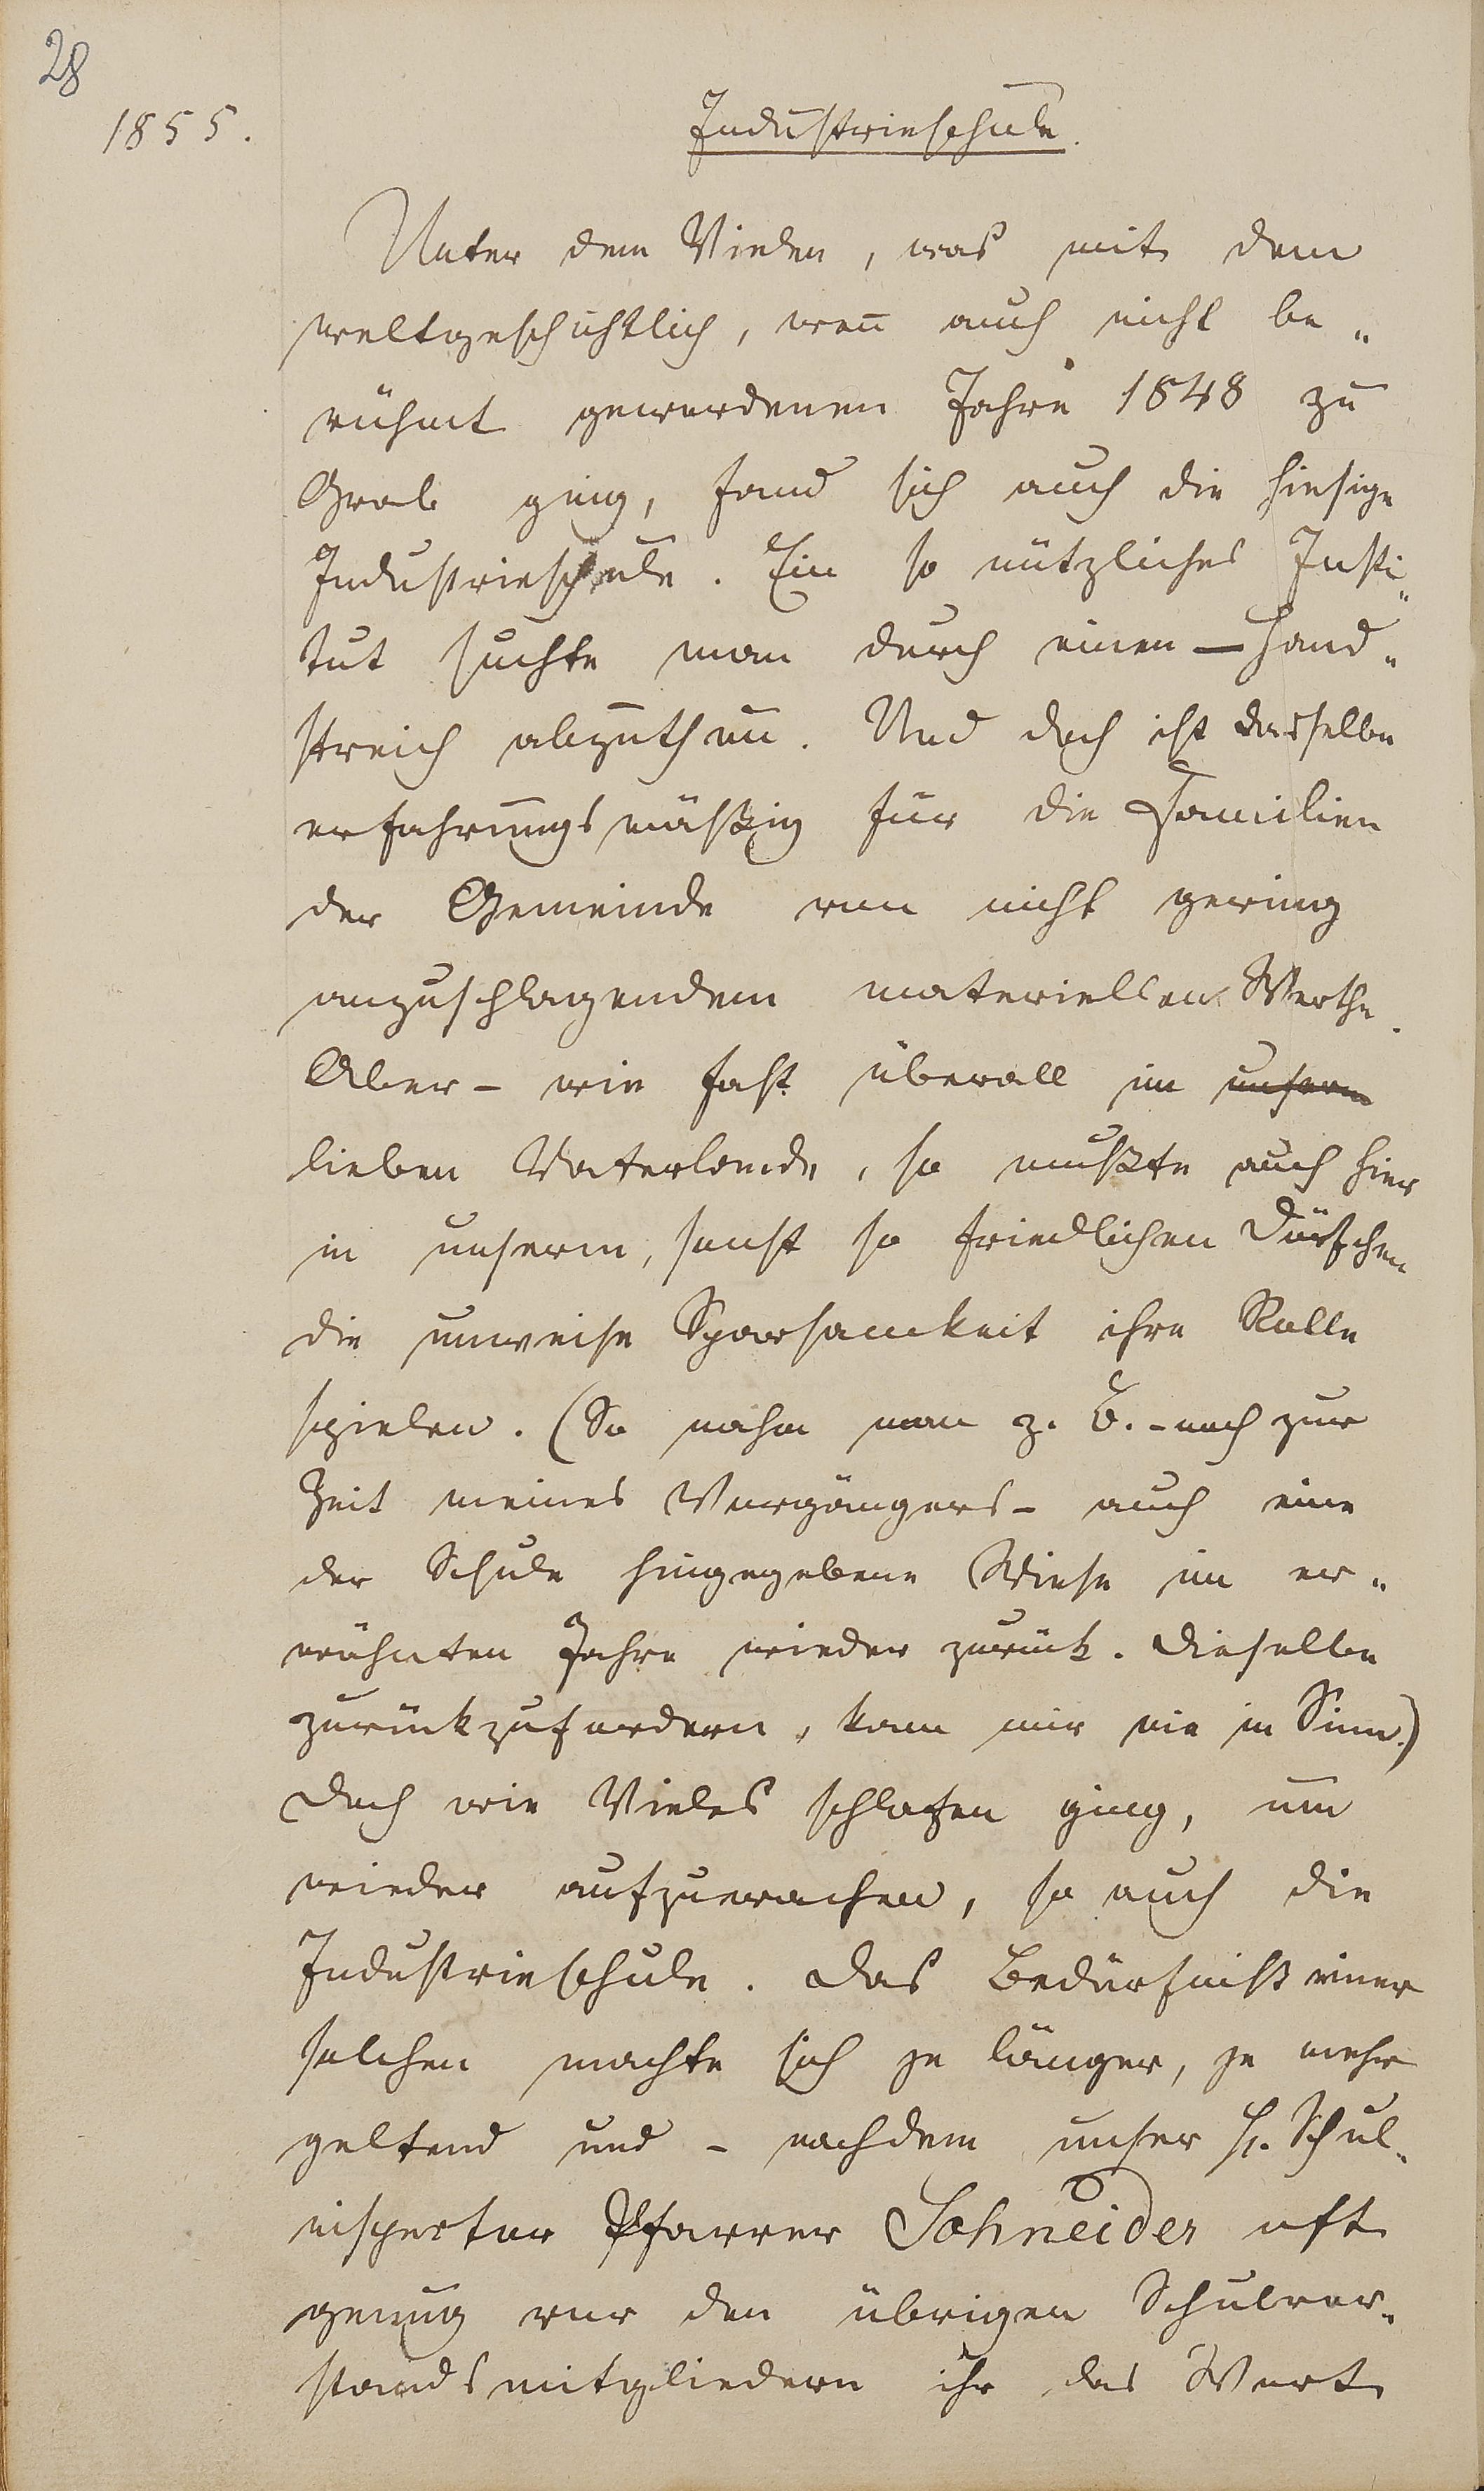 28
1855.
Industrieschule.
Unter dem Vielen, was mit dem
weltgeschichtlich, wenn auch nicht be„
rühmt gewordenen Jahre 1848 zu
Grab ging, fand sich auch die hiesige
Industrieschule. Ein so nützliches Insti„
tut suchte man durch einen – Hand„
streich abzuthun. Und doch ist dasselbe
erfahrungsmäßig für die Familien
der Gemeinde von nicht gering
anzuschlagendem materiellen Werthe.
Aber – wie fast überall im unserm
lieben Vaterlande, so mußte auch hier
in unserm, sonst so friedlichen Dörfchen
die unweise Sparsamkeit ihre Rolle
spielen. (So nahm man z. B. – noch zur
Zeit meines Vorgängers – auch eine
der Schule hingegebene Wiese im er„
wähnten Jahre wieder zurück. Dieselbe
zurückzufordern, kam mir nie in Sinn.)
Doch wie Vieles schlafen ging, um
wieder aufzuwachen, so auch die
Industrieschule. Das Bedürfniß einer
solchen machte sich je länger, je mehr
geltend und – nachdem unser H. Schul„
inspector Pfarrer Schneider oft
genug vor den übrigen Schulvor„
standsmitgliedern ihr das Wort